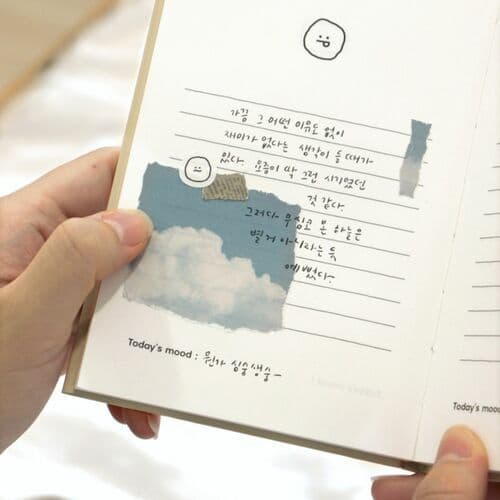 가끔 그 어떤 이유도 없이
재미가 없다는 생각이 들 때가
있다. 요즘이 딱 그런 시기였던
것 같다.
그러다 무심코 본 하늘은
별거 아니라는 듯
예뻤다.
Today's mood : 뭔가 싱숭생숭~
Today's mood